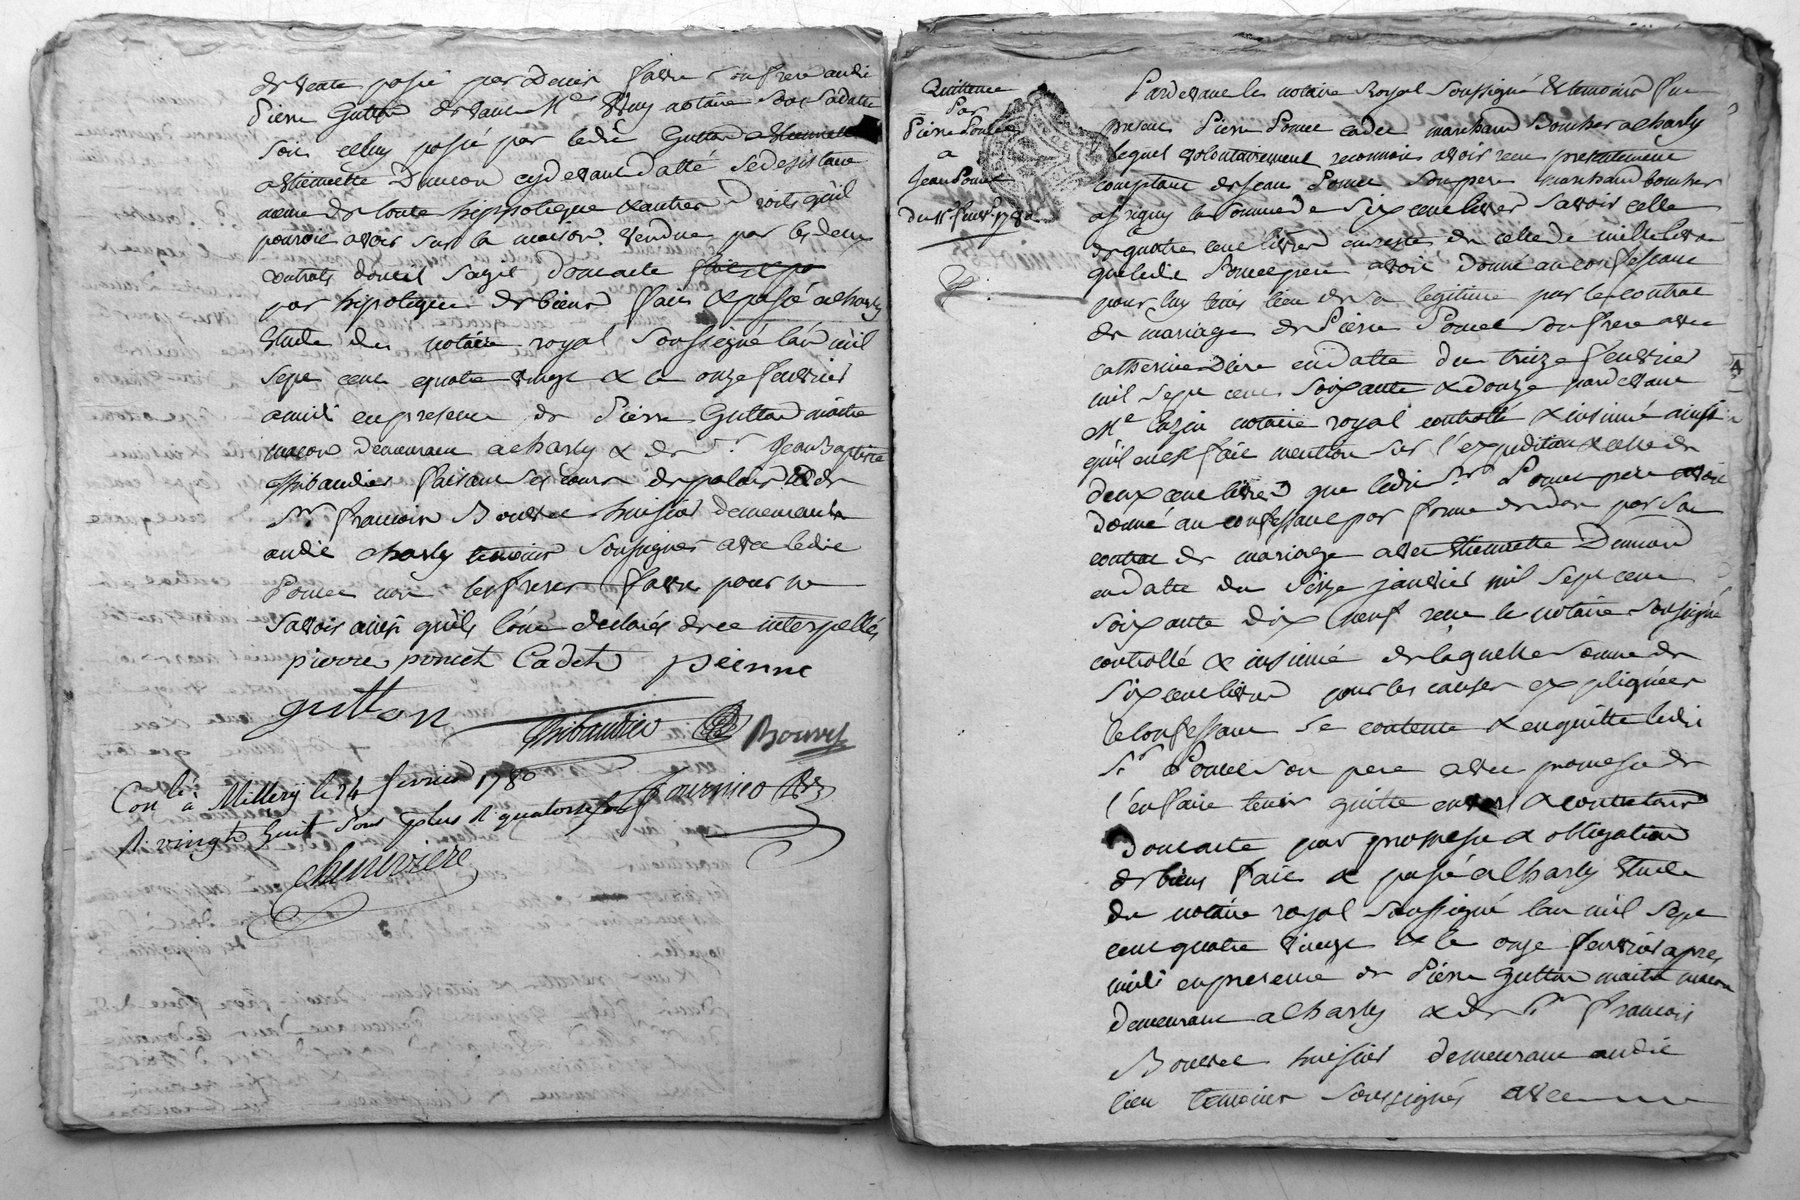 de vente passé par Denis favre son frere audit
Pierre Gutton devant Me notaire sous sa datte
soit celuy passé par ledit Gutton a Etiennette
a Etiennette Dumon cy devant datté se desistant
meme de toute hippoteque & autres droits qu'il
pouvoit avoir sur la maison vendue par les deux
contrats dont il s'agit, dont acte fait & pa
par hipoteque de biens fait & passé a Charly
Etude du notaire royal soussigné l'an mil
sept cent quatre vingt & le onze fevrier
a midi en presence de Pierre Gutton maitre
macon demeurant a Charly & de sr. Jean Baptiste
Thibaudier faisant ses cours de palais & de
Sr. francois Bouvet huissier demeurants
audit Charly temoins soussignés avec ledit
Poncet non les freres favre pour ne
savoir ainsi qu'ils l'ont declarés de ce interpellés
pierre poncet Cadet pierre
gutton Thibaudier Bouvet
Con lé à Millery le 14 fevrier 1780 fournier
R. vingt huit sous plus R quatorze s
chenevière
Quittence
Par
Pierre Poncet
a
Jean Poncet
Du 11e fevr. 1780
Pardevant le notaire Royal soussigné & temoins fut
present Pierre Poncet cadet marchand Boucher a Charly
lequel volontairement reconnoit avoir receu presentement
comptant de Jean Poncet son pere marchand boucher
a Irigny la somme de six cent livres savoir celle
de quatre cent livres en reste de celle de mille livres
que ledit Poncet pere avoit donné au confessant
pour luy tenir lieu de sa legitime par le contrat
de mariage de Pierre Poncet son frere avec
catherine en datte du treize fevrier
mil sept cent soixante & douze pardevant
Me notaire royal controllé & insinué ainsi
qu'il en est fait mention sur l'expedition & celle de
deux cent livres que ledit Sr. Poncet pere avoit
donné au confessant par forme de don par son
contrat de mariage avec Etiennette Dumon
en datte du seize janvier mil sept cent
soixante dix neuf receu le notaire soussigné
controllé & insinué de laquelle somme de
six cent livres pour les causes expliquées
le confessant se contente & en quitte ledit
Sr. Poncet son pere avec promesse de
l'en faire tenir quitte envers & contre tous
Dont acte par promesse & obligation
de biens fait & passé a Charly Etude
du notaire royal soussigné l'an mil sept
cent quatre vingt & le onze fevrier apres
midi en presence de Pierre Gutton maitre macon
demeurant a Charly & de sr. francois
Bouvet huissier demeurant audit
lieu temoins soussignés avec